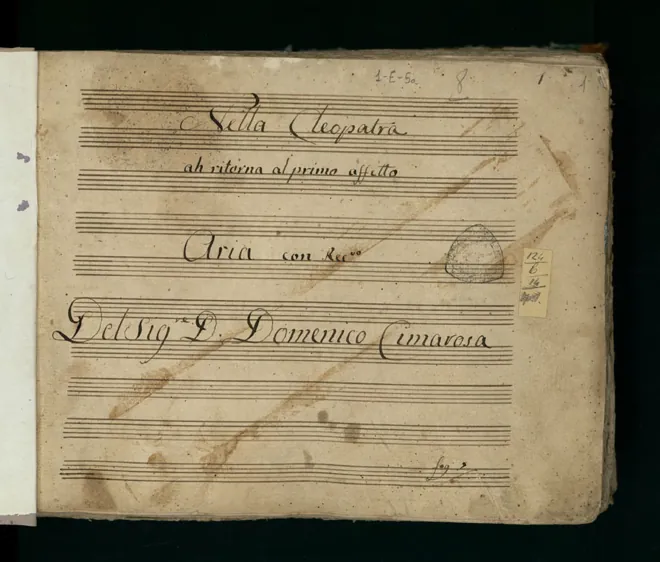 1-E-5a
8
1
Nella Cleopatra
ah ritorna al primo affetto
Aria con Rec.vo
124
6
14
Del Sig.re D. Domenico Cimarosa